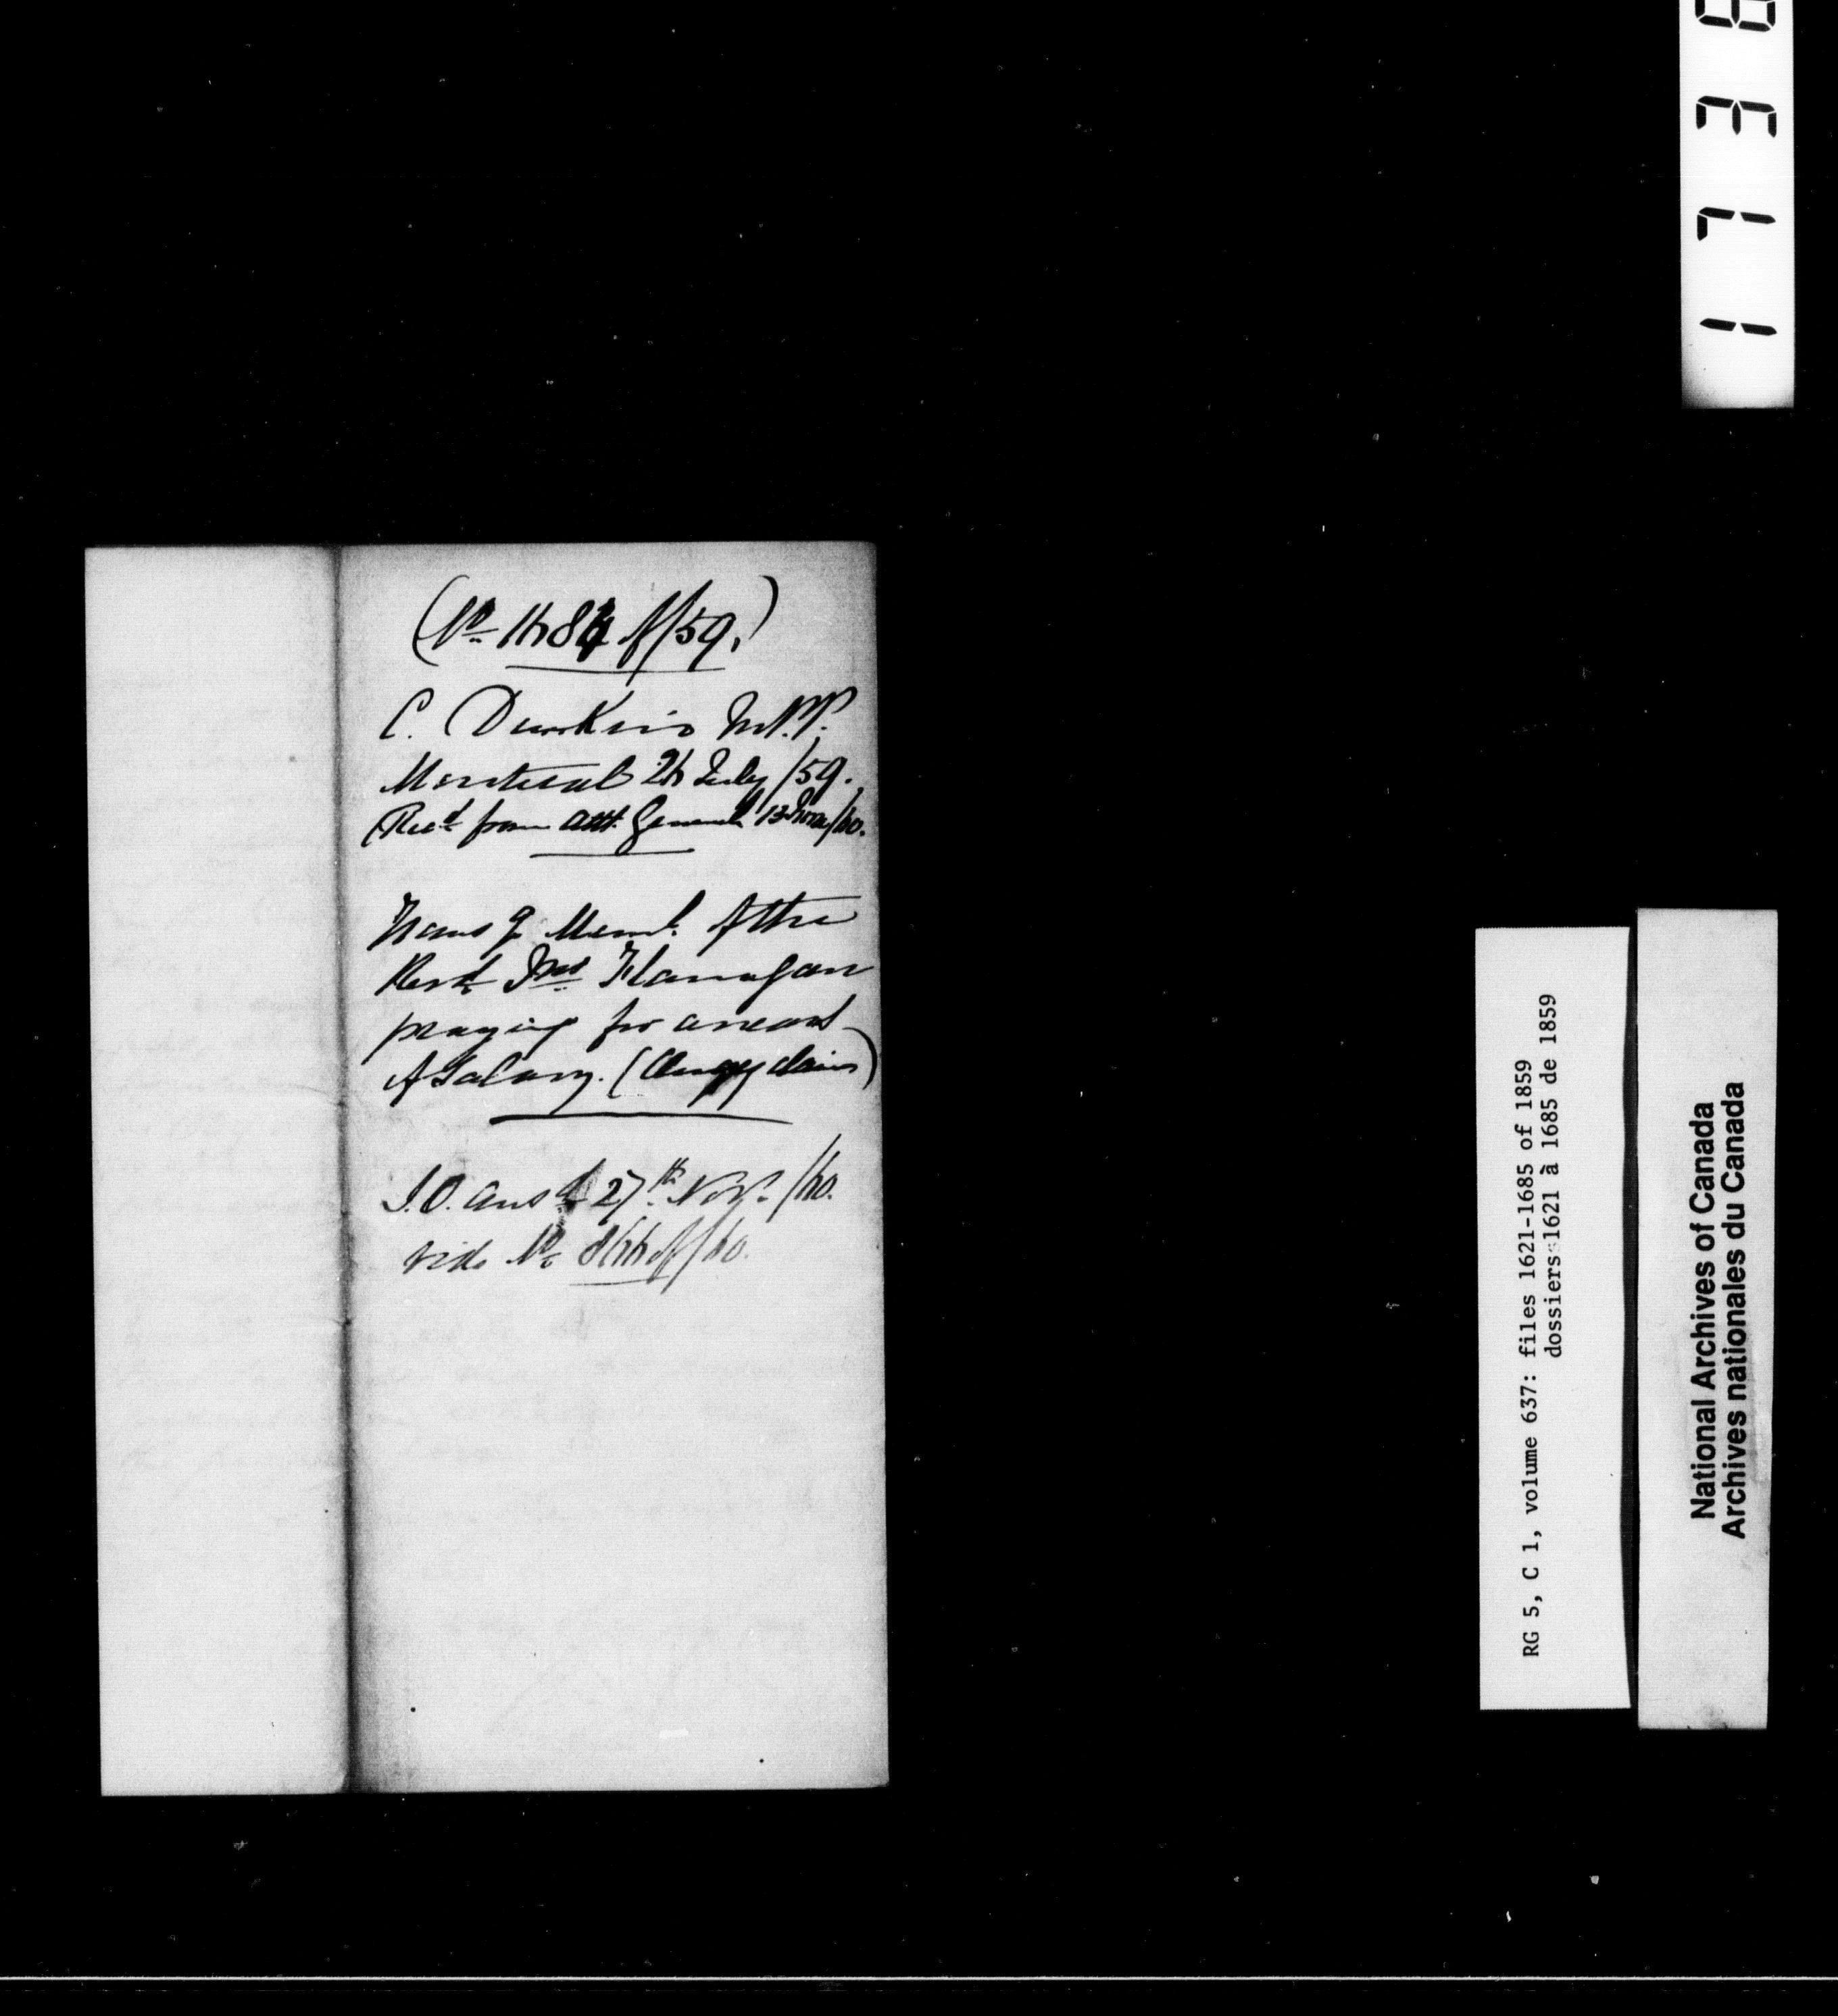 (No 1684 of/59.)
C. Dunkin M.P.P.
Montreal 26 July/59.
(Recd from Att. General 13 Nov/60.
Trans g Meml. of the
Revd Jno Flanagan
praying for arears
of Salary. (Clergy claim)
I.O. ansd 27th Novr. /60.
vide No 866 of/60.
1738
RG 5, C 1, volume 637: files 1621-1685 of 1859
dossiers 1621 à 1685 de 1859
National Archives of Canada
Archives nationales du Canada